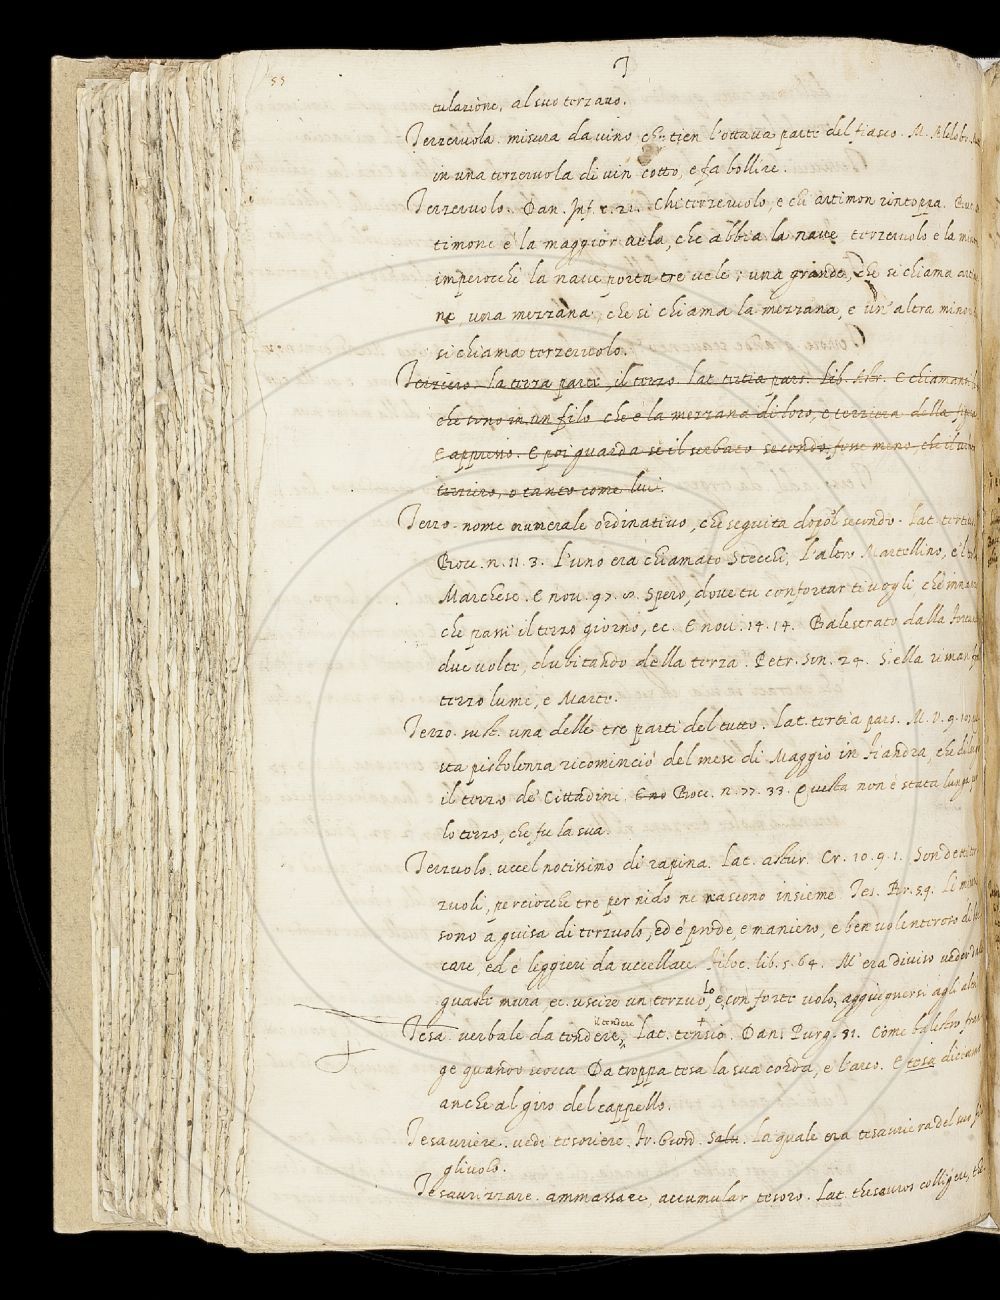 55
T
tulazione, al suo terzavo.
Terzeruola. misura da vino che tien l'ottava parte del fiasco. M.
in una terzeruola di vin cotto, e fa bollire.
Terzeruolo. Dan. Inf. c. 21. Chi terzeruolo, e chi artimon rintoppa.
timone è la maggior vela, che abbia la nave, terzeruolo è la
imperocchè la nave porta tre vele; una grande, che si chiama
ne, una mezzana, che si chiama la mezzana, e un'altra
si chiama terzeruolo.
Terziero. la terza parte, il terzo. lat. tertia pars. lib. Astr. E
che sono in un filo che è la mezzana di loro, e terziera della
E appresso. E poi guarda se il serbato secondo, fosse meno, che il
terziero, o tanto come lui.
Terzo. nome numerale ordinativo, che seguita dopo 'l secondo. Lat.
Bocc. n. 11. 3. L'uno era chiamato Stecchi, l'altro Martellino, e 'l
Marchese. E nov. 97. 8. Spero, dove tu confortar ti vogli che
che passi il terzo giorno, ec. E nov. 14. 14. Balestrato dalla
due volte, dubitando della terza. Petr. Son. 24. S'ella riman
terzo lume, e Marte.
Terzo. sust. una delle tre parti del tutto. Lat. tertia pars. M. V. 9.
sta pistolenza ricominciò del mese di Maggio in Fiandra, che di
il terzo de' Cittadini. E no Bocc. n. 77. 33. Questa non è stata lunga
lo terzo, che fu la sua.
Terzuolo. uccel notissimo di rapina. Lat. astur. Cr. 10. 9. 1. Son detti
zuoli, perciocchè tre per nido ne nascono insieme. Tes. Br. 59. Li
sono a guisa di terzuolo, ed è prode, e maniero, e ben volenteroso di
care, ed è leggieri da uccellare. Filoc. lib. 5. 64. M'era diviso veder
queste mura, ec. uscire un terzuolo, e, con forte volo, aggiugnersi agli
Tesa. verbale da tendere, il tendere Lat. tensio. Dan. Purg. 31. Come balestro
ge quando scocca Da troppa tesa la sua corda, e l'arco. E tesa diciamo
anche al giro del cappello.
Tesauriere. vedi tesoriere. Fr. Giord. Salu. la quale era tesauriera del suo
gliuolo.
Tesaurizzare. ammassare, accumular tesoro. Lat. thesauros colligere,